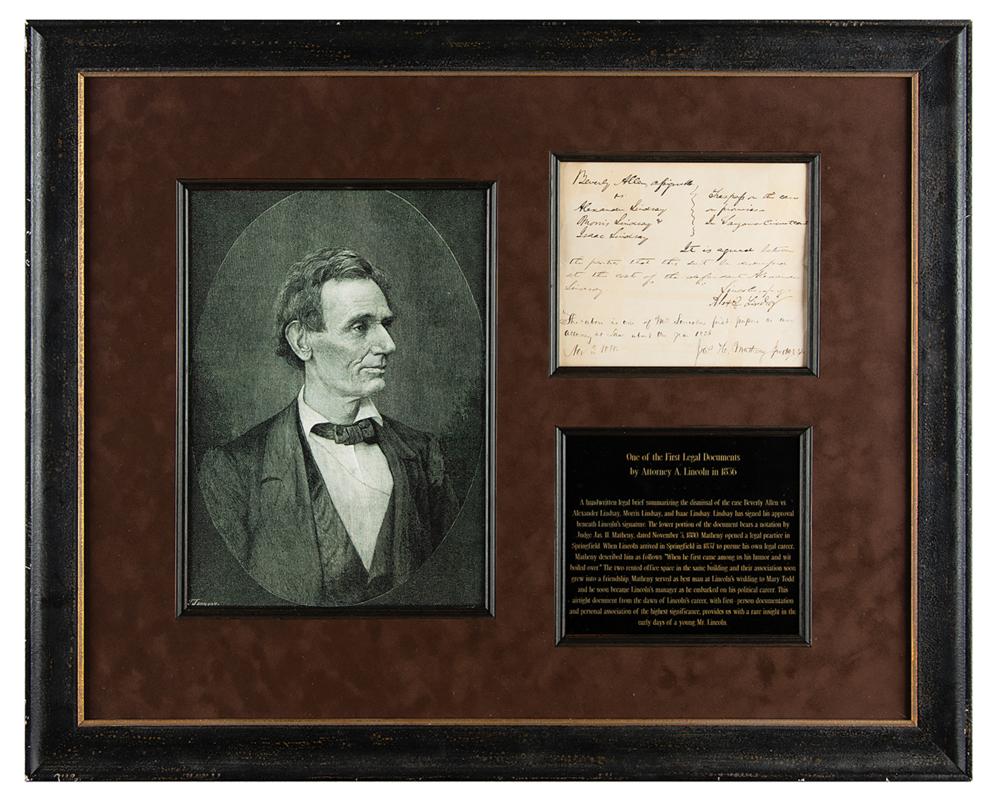 Beverly Allen assignee
vs
Alexander Lindsay
Morris Lindsay &
Isaac Lindsay
Trespass on the case
on promises
In Sangamo Circuit court
It is agreed between
the parties that this suit be dismissed
at the cost of the defendant Alexander
Lindsay
Alexr Lindsay
The above is one of Mr Lincolns first papers as an
attorney at law about the year 1836
Nov 1880.
Jas H. Matheny
One of the First Legal Documents
by Attorney A. Lincoln in 1836
A handwritten legal brief summarizing the dismissal of the case Beverly Allen vs
Alexander Lindsay, Morris Lindsay, and Isaac Lindsay. Lindsay has signed his approval
beneath Lincoln's signature. The lower portion of the document bears a notation by
Judge Jas. H. Matheny, dated November 3, 1880. Matheny opened a legal practice in
Springfield. When Lincoln arrived in Springfield in 1837 to pursue his own legal career,
Matheny described him as follows: "When he first came among us his humor and wit
boiled over." The two rented office space in the same building and their association soon
grew into a friendship. Matheny served as best man at Lincoln's wedding to Mary Todd
and he soon became Lincoln's manager as he embarked on his political career. This
airtight document from the dawn of Lincoln's career, with first-person documentation
and personal association of the highest significance, provides us with a rare insight in the
early days of a young Mr. Lincoln.